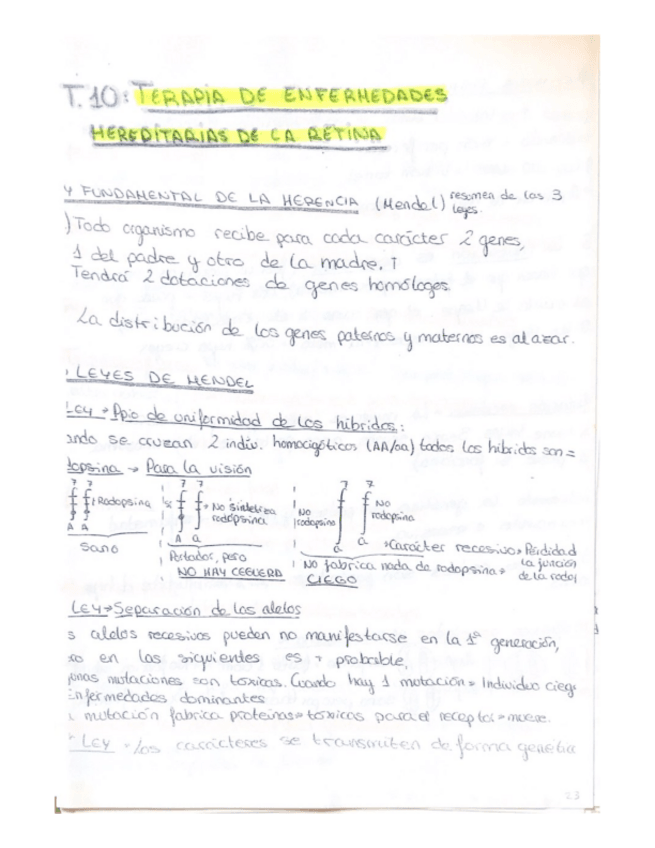 T.10: TERAPIA DE ENFERMEDADES
HEREDITARIAS DE LA RETINA
Y FUNDAMENTAL DE LA HERENCIA (Mendel) resumen de las 3 leyes.
) Todo organismo recibe para cada carácter 2 genes,
1 del padre y otro de la madre. ↑
Tendrá 2 dotaciones de genes homólogos
La distribución de los genes paternos y maternos es al azar.
LEYES DE MENDEL
LEY → Ppio de uniformidad de los híbridos:
ando se cruzan 2 indiv. homocigóticos (AA/aa) todos los híbridos son =
dopsina → Para la visión
7 7 7 7 7 7
Rodopsina
No sintetiza rodopsina
No rodopsina
No rodopsina
A A A a a a
Sano
Portador, pero
NO HAY CEGUERA
Carácter recesivo → Pérdida d la función de la rodo
No fabrica nada de rodopsina →
CIEGO
LEY → Separación de los alelos
s alelos recesivos pueden no manifestarse en la 1ª generación,
ro en las siguientes es probable.
unas mutaciones son tóxicas. Cuando hay 1 mutación = Individuo cieg
Enfermedades dominantes
mutación fabrica proteínas → tóxicas para el receptor → muere.
LEY → los caracteres se transmiten de forma
23